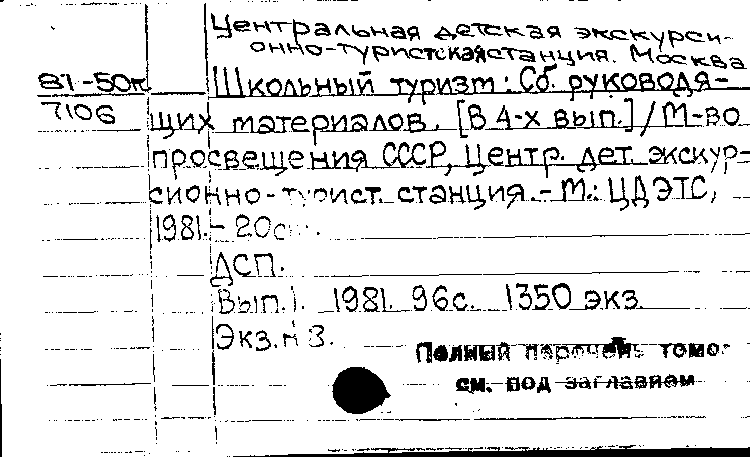 Центральная детская экскурси-
онно-туристская станция. Москва
81-50к Школьный туризм: Сб. руководя-
7106 щих материалов. [В 4-х вып.] / М-во
просвещения СССР, Центр. дет. экскур-
сионно-турист. станция. - М.: ЦДЭТС,
1981. - 20см.
ДСП.
Вып.1. 1981. 96с. 1350 экз.
Экз. № 3.
Полный перечень томо
см. под заглавием